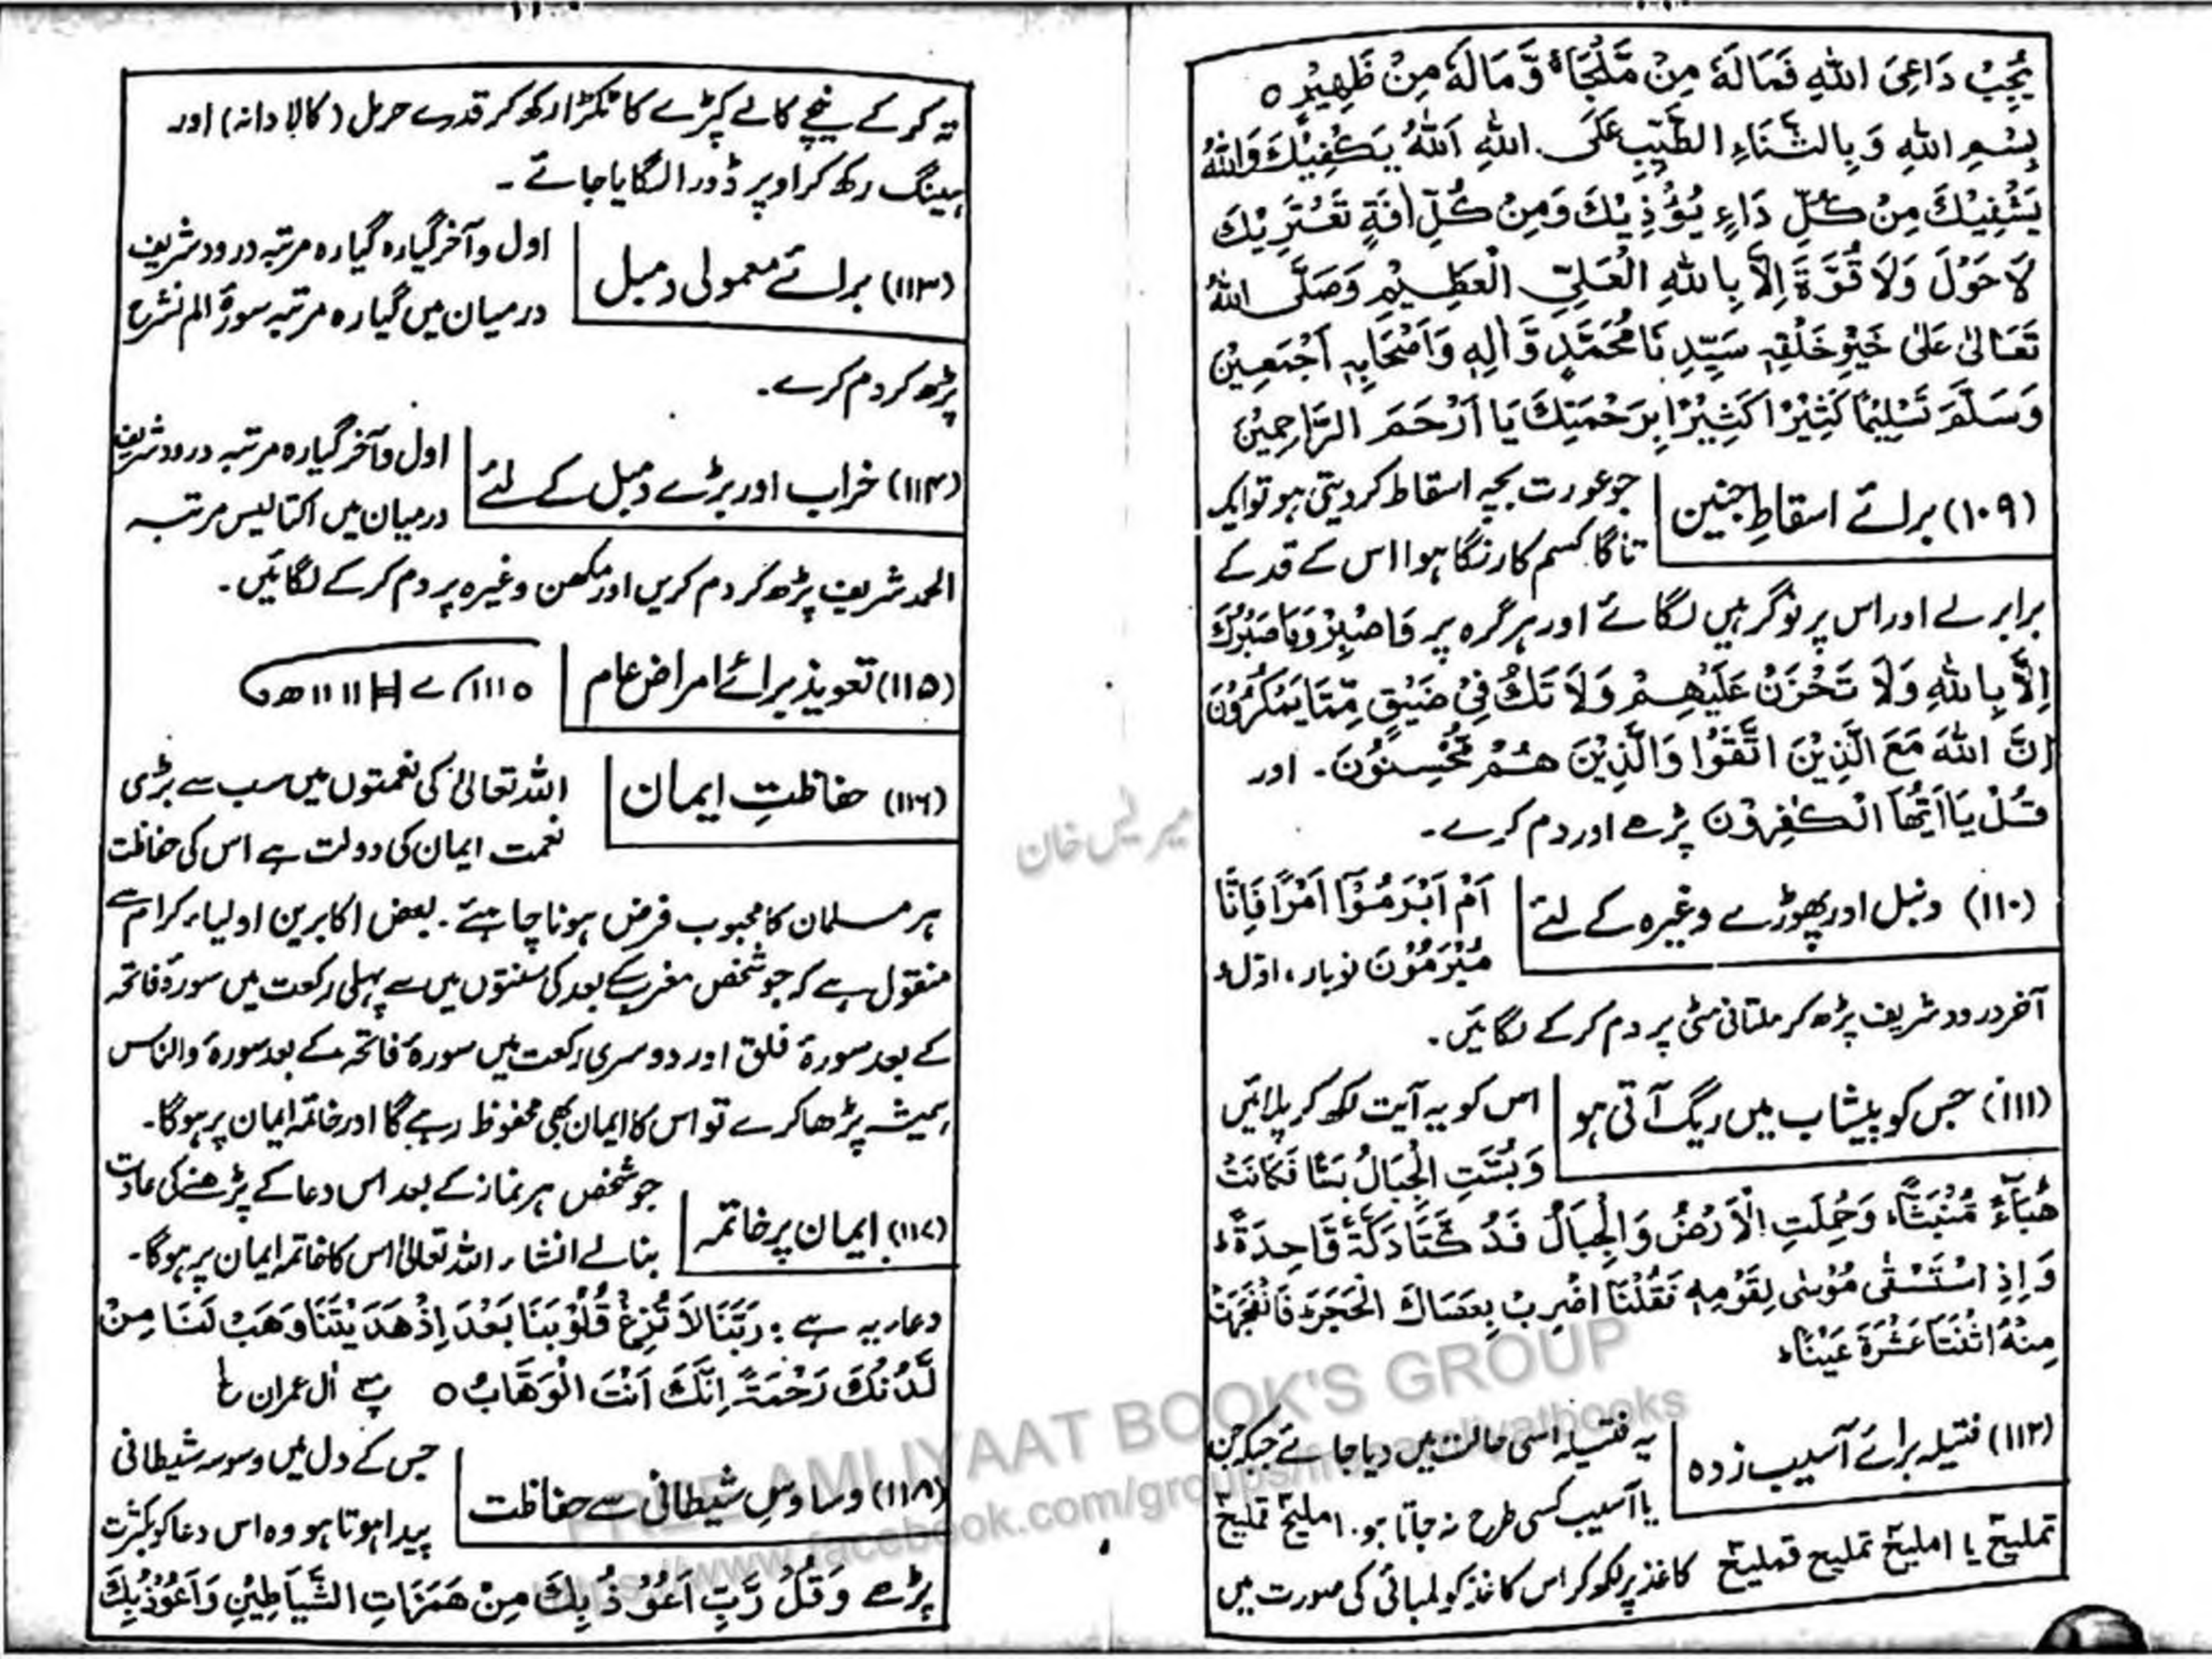 يُجِبْ دَاعِىَ اللهِ فَمَالَهٗ مِنْ مَّلْجَاءٍ وَّمَالَهٗ مِنْ ظَهِيْرٍ ○
بِسْمِ اللهِ وَبِالثَّنَاءِ الطَّيِّبِ عَلَى اللهِ اَللهُ يَكْفِيْكَ وَاللهُ
يَشْفِيْكَ مِنْ كُلِّ دَاءٍ يُّؤْذِيْكَ وَمِنْ كُلِّ اٰفَةٍ تَعْتَرِيْكَ
لَا حَوْلَ وَلَا قُوَّةَ اِلَّا بِاللهِ الْعَلِىِّ الْعَظِيْمِ وَصَلَّى اللهُ
تَعَالٰى عَلٰى خَيْرِ خَلْقِهٖ سَيِّدِنَا مُحَمَّدٍ وَّاٰلِهٖ وَاَصْحَابِهٖ اَجْمَعِيْنَ
وَسَلَّمَ تَسْلِيْمًا كَثِيْرًا كَثِيْرًا بِرَحْمَتِكَ يَا اَرْحَمَ الرَّاحِمِيْنَ
(۱۰۹) برائے اسقاطِ جنین
جو عورت بچہ اسقاط کر دیتی ہو تو ایک
تاگا کسم کا رنگا ہوا اس کے قد کے
برابر لے اور اس پر نو گرہیں لگائے اور ہر گرہ پر وَاصْبِرْ وَمَا صَبْرُكَ
اِلَّا بِاللهِ وَلَا تَحْزَنْ عَلَيْهِمْ وَلَا تَكُ فِىْ ضَيْقٍ مِّمَّا يَمْكُرُوْنَ
اِنَّ اللهَ مَعَ الَّذِيْنَ اتَّقَوْا وَالَّذِيْنَ هُمْ مُّحْسِنُوْنَ۔ اور
قُلْ يَا اَيُّهَا الْكٰفِرُوْنَ پڑھے اور دم کرے۔
(۱۱۰) دنبل اور پھوڑے وغیرہ کے لئے
اَمْ اَبْرَمُوْٓا اَمْرًا فَاِنَّا
مُبْرِمُوْنَ نو بار، اول و
آخر درود شریف پڑھ کر ملتانی مٹی پر دم کر کے لگائیں۔
(۱۱۱) جس کو پیشاب میں ریگ آتی ہو
اس کو یہ آیت لکھ کر پلائیں
وَبُسَّتِ الْجِبَالُ بَسًّا فَكَانَتْ
هَبَآءً مُّنْبَثًّا وَحُمِلَتِ الْاَرْضُ وَالْجِبَالُ فَدُكَّتَا دَكَّةً وَّاحِدَةً
وَاِذِ اسْتَسْقٰى مُوْسٰى لِقَوْمِهٖ فَقُلْنَا اضْرِبْ بِعَصَاكَ الْحَجَرَ فَانْفَجَرَتْ
مِنْهُ اثْنَتَا عَشْرَةَ عَيْنًا
(۱۱۲) فتیلہ برائے آسیب زدہ
یہ فتیلہ اسی حالت میں دیا جائے جبکہ جن
یا آسیب کسی طرح نہ جاتا ہو۔ املیخ تملیخ
تملیخ یا املیخ تملیخ قملیخ کاغذ پر لکھ کر اس کاغذ کو لمبائی کی صورت میں
تہ کر کے نیچے کالے کپڑے کا ٹکڑا رکھ کر قدرے حرمل (کالا دانہ) اور
ہینگ رکھ کر اوپر ڈورا لگایا جائے۔
(۱۱۳) برائے معمولی دمبل
اول و آخر گیارہ گیارہ مرتبہ درود شریف
درمیان میں گیارہ مرتبہ سورۂ الم نشرح
پڑھ کر دم کرے۔
(۱۱۴) خراب اور بڑے دمبل کے لئے
اول و آخر گیارہ مرتبہ درود شریف
درمیان میں اکتالیس مرتبہ
الحمد شریف پڑھ کر دم کریں اور مکھن وغیرہ پر دم کر کے لگائیں۔
(۱۱۵) تعویذ برائے امراض عام
(۱۱۶) حفاظتِ ایمان
اللہ تعالیٰ کی نعمتوں میں سب سے بڑی
نعمت ایمان کی دولت ہے اس کی حفاظت
ہر مسلمان کا محبوب فرض ہونا چاہئے۔ بعض اکابرین اولیاء کرام سے
منقول ہے کہ جو شخص مغرب کے بعد کی سنتوں میں سے پہلی رکعت میں سورۂ فاتحہ
کے بعد سورۂ فلق اور دوسری رکعت میں سورۂ فاتحہ کے بعد سورۂ والناس
ہمیشہ پڑھا کرے تو اس کا ایمان بھی محفوظ رہے گا اور خاتمہ ایمان پر ہوگا۔
(۱۱۷) ایمان پر خاتمہ
جو شخص ہر نماز کے بعد اس دعا کے پڑھنے کی عادت
بنا لے انشاء اللہ تعالیٰ اس کا خاتمہ ایمان پر ہوگا۔
دعا یہ ہے : رَبَّنَا لَا تُزِغْ قُلُوْبَنَا بَعْدَ اِذْ هَدَيْتَنَا وَهَبْ لَنَا مِنْ
لَّدُنْكَ رَحْمَةً اِنَّكَ اَنْتَ الْوَهَّابُ ○ اٰل عمران
(۱۱۸) وساوسِ شیطانی سے حفاظت
جس کے دل میں وسوسہ شیطانی
پیدا ہوتا ہو وہ اس دعا کو بکثرت
پڑھے وَقُلْ رَّبِّ اَعُوْذُ بِكَ مِنْ هَمَزَاتِ الشَّيَاطِيْنِ وَاَعُوْذُ بِكَ
FREE AMLIYAAT BOOK'S GROUP
https://www.facebook.com/groups/freeamliyatbooks